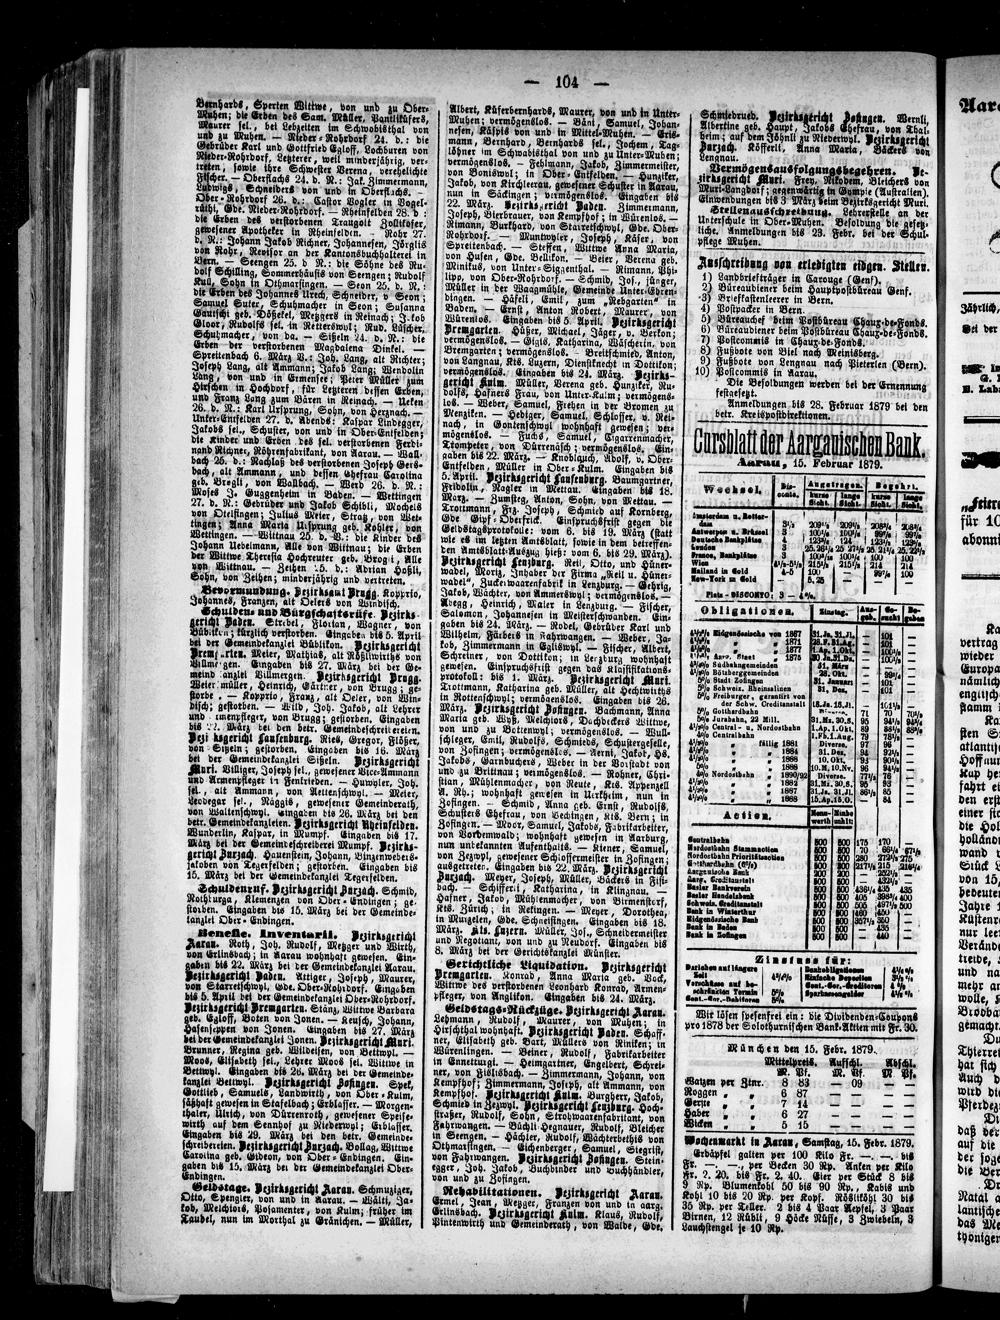 — 104 —
Bernhards, Sperten Wittwe, von und zu Ober-
Muhen; die Erben des Sam. Müller, Bantlikäfers,
Maurer sel., bei Lebzeiten im Schwabisthal von
und zu Muhen. — Nieder-Rohrdorf 24. d.: die
Gebrüder Karl und Gottfried Egloff, Lochburen von
Nieder-Rohrdorf, Letzterer, weil minderjährig, ver-
treten, sowie ihre Schwester Verena, verehelichte
Fischer. — Oberflachs 24. d. N.: Jak. Zimmermann,
Ludwigs, Schneiders von und in Oberflachs. —
Ober-Rohrdorf 26. d.: Castor Vogler in Vogel-
rüthi, Gde. Nieder-Rohrdorf. — Rheinfelden 28. d.:
die Erben des verstorbenen Traugott Zollikofer,
gewesener Apotheker in Rheinfelden. — Rohr 27.
d. N.: Johann Jakob Richner, Johannesen, Jörglis
von Rohr, Revisor an der Kantonsbuchhalterei in
Bern. — Seengen 25. d. N.: die Söhne des Ru-
dolf Schilling, Sommerhäufis von Seengen; Rudolf
Kull, Sohn in Othmarsingen. — Seon 25. d. N.:
die Erben des Johannes Urech, Schneider, v. Seon;
Samuel Suter, Schuhmacher in Seon; Susanna
Gautschi geb. Dößekel, Metzgers in Reinach; Jakob
Gloor, Rudolfs sel., in Retterswyl; Rud. Lüscher,
Schuhmacher, von da. — Sißeln 24. d. N.: die
Erben der verstorbenen Magdalena Dinkel. —
Spreitenbach 6. März N.: Joh. Lang, alt Richter;
Joseph Lang, alt Ammann; Jakob Lang; Wendolin
Lang, von und in Ermensee; Peter Müller zum
Hirschen in Hochdorf, für Letzteren dessen Erben,
und Franz Lang zum Bären in Reinach. — Ueken
26. d. N.: Karl Ursprung, Sohn, von Herznach. —
Unter-Entfelden 27. d. Abends: Kaspar Lindegger,
Jakobs sel., Schuster, von und in Ober-Entfelden;
die Kinder und Erben des sel. verstorbenen Ferdi-
nand Richner, Röhrenfabrikant, von Aarau. — Wall-
bach 26. d.: Nachlaß des verstorbenen Joseph Gers-
bach, alt Ammann, und dessen Ehefrau Carolina
geb. Brogli, von Wallbach. — Werd 26. d. N.:
Moses J. Guggenheim in Baden. — Wettingen
27. d. N.: Gebrüder und Jakob Schibli, Mocheis
von Otelfingen; Julius Meier, Straß, von Wet-
tingen; Anna Maria Ursprung geb. Kohler, von
Wettingen. — Wittnau 25. d. N.: die Kinder des
Johann Uebelmann, Alle von Wittnau; die Erben
der Wittwe Theresia Hochreuter geb. Brogi, Alle
von Wittnau. — Zeihen 25. d.: Adrian Hoßli,
Sohn, von Zeihen; minderjährig und vertreten.
Bevormundung. Bezirksamt Brugg. Kopprio,
Johannes, Franzen, alt Oelers von Windisch.
Schulden- und Bürgschaftsrüfe. Bezirks-
gericht Baden. Strebel, Florian, Wagner, von
Büblikon; kürzlich verstorben. Eingaben bis 5. April
bei der Gemeindekanzlei Büblikon. Bezirksgericht
Bremgarten. Meier, Mathias, alt Rößliwirths von
Villmergen. Eingaben bis 27. März bei der Ge-
meindekanzlei Villmergen. Bezirksgericht Brugg.
Weiermüller, Heinrich, Gärtner, von Brugg; ge-
storben — Kopprio, Franz, alt Oeler, von Win-
disch; gestorben. — Wild, Joh. Jakob, alt Lehrer
und Armenpfleger, von Brugg; gestorben. Eingaben
bis 22. März bei den betr. Gemeindeschreibereien.
Bezirksgericht Laufenburg. Ries, Gregor, Flößer,
von Sißeln; gestorben. Eingaben bis 16. März
bei der Gemeindekanzlei Sißeln. Bezirksgericht
Muri. Villiger, Joseph sel., gewesener Vice-Ammann
und Armenpfleger in Fenkrieden. — Huwyler, Joh.
sel., alt Ammann, von Aettenschwyl. — Meier,
Leodegar sel., Näggis, gewesener Gemeinderath,
von Waltenschwyl. Eingaben bis 26. März bei den
betr. Gemeindekanzleien. Bezirksgericht Rheinfelden.
Wunderlin, Kaspar, in Mumpf. Eingaben bis 17.
März bei der Gemeindeschreiberei Mumpf. Bezirks-
gericht Zurzach. Hauenstein, Johann, Linzenwebers-
jakoben von Tegerfelden; gestorben. Eingaben bis
15. März bei der Gemeindekanzlei Tegerfelden.
Schuldenruf. Bezirksgericht Zurzach. Schmid,
Nothburga, Klemenzen von Ober-Endingen; ge-
storben. Eingaben bis 15. März bei der Gemeinde-
kanzlei Ober-Endingen.
Benefic. Inventarii. Bezirksgericht
Aarau. Roth, Joh. Rudolf, Metzger und Wirth,
von Erlinsbach; in Aarau wohnhaft gewesen. Ein-
gaben bis 22. März bei der Gemeindekanzlei Aarau.
Bezirksgericht Baden. Attiger, Joseph, Maurer,
von Starretschwyl, Gde. Ober-Rohrdorf. Eingaben
bis 5. April bei der Gemeindekanzlei Ober-Rohrdorf.
Bezirksgericht Bremgarten. Stänz, Wittwe Barbara
geb. Egloff, Boten von Jonen. — Keusch, Johann,
Hafenseppen von Jonen. Eingaben bis 27. März
bei der Gemeindekanzlei Jonen. Bezirksgericht Muri.
Brunner, Regina geb. Wildeisen, von Bettwyl. —
Moos, Elisabeth sel., Lehrer Moos sel. Wittwe in
Bettwyl. Eingaben bis 26. März bei der Gemeinde-
kanzlei Bettwyl. Bezirksgericht Zofingen. Spek,
Gottlieb, Samuels, Landwirth, von Ober-Kulm,
säßhaft gewesen in Stafelbach; Erblasser. — Morgen-
thaler, Ulrich, von Dürrenroth, gewesener Speise-
wirth auf dem Sennhof zu Niederwyl; Erblasser.
Eingaben bis 29. März bei den betr. Gemeinde-
schreibereien. Bezirksgericht Zurzach. Bollag, Wittwe
Carolina geb. Gideon, von Ober-Endingen. Ein-
gaben bis 15. März bei der Gemeindekanzlei Ober-
Endingen.
Geldstage. Bezirksgericht Aarau. Schmuziger,
Otto, Spengler, von und in Aarau. — Wälti, Ja-
kob, Melchiors, Posamenter, von Kulm; früher im
Taubel, nun im Morthal zu Gränichen. — Müller,
Albert, Küferbernhards, Maurer, von und in Unter-
Muhen; vermögenslos. — Bäni, Samuel, Johan-
nesen, Käspis von und in Mittel-Muhen. — Eris-
mann, Bernhard, Bernhards sel., Jochem, Tag-
löhner im Schwabisthal von und zu Unter-Muhen;
vermögenslos. — Fehlmann, Jakob, Zimmermeister,
von Boniswyl; in Ober-Entfelden. — Hunziker,
Jakob, von Kirchleerau, gewesener Schuster in Aarau,
nun in Säckingen; vermögenslos. Eingaben bis
22. März. Bezirksgericht Baden. Zimmermann,
Joseph, Bierbrauer, von Kempfhof; in Würenlos. —
Rimann, Burkhard, von Starretschwyl, Gde. Ober-
Rohrdorf. — Muntwyler, Joseph, Käser, von
Spreitenbach. — Steffen, Wittwe Anna Maria,
von Husen, Gde. Bellikon. — Beier, Verena geb.
Minikus, von Unter-Siggenthal. — Rimann, Phi-
lipp, von Ober-Rohrdorf. — Schmid, Jos., jünger,
Müller in der Waagmühle, Gemeinde Unter-Ehren-
dingen. — Häfeli, Emil, zum „Rebgarten“ in
Baden. — Ernst, Anton Robert, Maurer, von
Würenlos. Eingaben bis 5. April. Bezirksgericht
Bremgarten. Hüßer, Michael, Jäger, v. Berkon;
vermögenslos. — Gisis, Katharina, Wäscherin, von
Bremgarten; vermögenslos. — Breitschmied, Anton,
von Langnau, Kts. Luzern, Dienstknecht in Dottikon;
vermögenslos. Eingaben bis 24. März. Bezirks-
gericht Kulm. Müller, Verena geb. Hunziker, Ru-
dolfs, Hafners Frau, von Unter-Kulm; vermögens-
los. — Weber, Samuel, Frehen in der Bromen zu
Menziken. — Hediger, Samuel, Schlosser, v. Rei-
nach, in Gontenschwyl wohnhaft gewesen; ver-
mögenslos. — Fuchs, Samuel, Cigarrenmacher,
Trompeter, von Dürrenäsch; vermögenslos. Ein-
gaben bis 22. März. — Knoblauch, Adolf, v. Ober-
Entfelden, Müller in Ober-Kulm. Eingaben bis
5. April. Bezirksgericht Laufenburg. Baumgartner,
Fridolin, Nagler in Mettau. Eingaben bis 18.
März. — Zumsteg, Anton, Sohn, von Mettau. —
Trottmann, Frz. Joseph, Schmied auf Kornberg,
Gde Gipf-Oberfrick. Einspruchsfrist gegen die
Geldstagsprotokolle: vom 6. bis 19. März (statt
wie es im letzten Amtsblatt, sowie in dem betreffen-
den Amtsblatt-Auszug hieß: vom 6. bis 29. März).
Bezirksgericht Lenzburg. Reil, Otto, und Hüner-
wadel, Moriz, Inhaber der Firma „Reil u. Hüner-
wadel“, Zuckerwaarenfabrik in Lenzburg. — Gehrig,
Jakob, Wächter, von Ammerswyl; vermögenslos. —
Abegg, Heinrich, Maler in Lenzburg. — Fischer,
Salomon, Johannesen in Meisterschwanden. Ein-
gaben bis 24. März. — Rodel, Gebrüder Karl und
Wilhelm, Färbers in Fahrwangen. — Weber, Ja-
kob, Zimmermann in Egliswyl. — Fischer, Albert,
Schreiner, von Dottikon; in Lenzburg wohnhaft
gewesen. Einspruchsfrist gegen das Klassifikations-
protokoll: bis 1. März. Bezirksgericht Muri.
Trottmann, Katharina geb. Müller, alt Hechtwirths
in Rottenschwyl; vermögenslos. Eingaben bis 26.
März. Bezirksgericht Zofingen. Bachmann, Anna
Maria geb. Wyß, Melchiors, Dachdeckers Wittwe,
von und zu Bottenwyl; vermögenslos. — Wull-
schleger, Emil, Rudolfs, Schmieds, Schustergeselle,
von Zofingen; vermögenslos. — Aerni, Jakob, Hs.
Jakobs, Garnbuchers, Weber in der Vorstadt von
und zu Brittnau; vermögenslos. — Rohner, Chri-
stian, Mühlenmacher, von Reute, Kts. Appenzell
A.-Rh.; wohnhaft gewesen in Uerkheim, nun in
Zofingen. — Schmid, Anna geb. Ernst, Rudolfs,
Schusters Ehefrau, von Bechingen, Kts. Bern; in
Zofingen. — Moor, Samuel, Jakobs, Fabrikarbeiter,
von Vordemwald; wohnhaft gewesen in Aarburg,
nun unbekannten Aufenthalts. — Kiener, Samuel,
von Zezwyl, gewesener Schlossermeister in Zofingen;
ausgetreten. Eingaben bis 22. März. Bezirksgericht
Zurzach. Meyer, Joseph, Müller, Bäckers in Fisi-
bach. — Schifferli, Katharina, in Klingnau. —
Hafner, Jakob, Mühlenmacher, von Birmenstorf,
Kts. Zürich; in Rekingen. — Meyer, Dorothea,
in Nurzelen, Gde. Schneisingen. Eingaben bis 18.
März. Kts. Luzern. Müller, Jos., Schneidermeister
und Negotiant, von und zu Neudorf. Eingaben bis
8. März bei der Gerichtskanzlei Münster.
Gerichtliche Liquidation. Bezirksgericht
Bremgarten. Konrad, Anna Maria geb. Vock,
Wittwe des verstorbenen Leonhard Konrad, Armen-
pfleger, von Anglikon. Eingaben bis 24. März.
Geldstags-Rückzüge. Bezirksgericht Aarau.
Lehmann, Rudolf, Maurer, von Muhen; in
Hirschthal wohnhaft. Bezirksgericht Baden. Schaff-
ner, Elisabeth geb. Bart, Müllers von Riniken; in
Würenlingen. — Beiner, Rudolf, Fabrikarbeiter
in Ennetturgi. — Heimgartner, Engelbert, Schrei-
ner, von Fislisbach. — Zimmermann, Johann, von
Kempfhof; Zimmermann, Joseph, alt Ammann, von
Kempfhof. Bezirksgericht Kulm. Burgherr, Jakob,
Schmied in Zezwyl. Bezirksgericht Lenzburg. Hoch-
straßer, Rudolf, Sohn, Strohwaarenfabrikant, von
Fahrwangen. — Büchli-Hegnauer, Rudolf, Bleicher
in Seengen. — Hächler, Rudolf, Wächterbethis von
Othmarsingen. — Eichenberger, Samuel, Siegrist,
von Fahrwangen. Bezirksgericht Zofingen. Stein-
egger, Joh. Jakob, Buchbinder und Buchhändler,
von und zu Zofingen.
Rehabilitationen. Bezirksgericht Aarau.
Ernst, Jean, Metzger, Franzen von und in aarg.
Erlinsbach. Bezirksgericht Kulm. Klaus, Rudolf,
Pintenwirth und Gemeinderath, von Walde, Gde.
Schmiedrued. Bezirksgericht Zofingen. Wernli,
Albertine geb. Haupt, Jakobs Ehefrau, von Thal-
heim; auf dem Jöhnli zu Niederwyl. Bezirksgericht
Zurzach. Köfferli, Anna Maria, Bäckers von
Lengnau.
Vermögensausfolgungsbegehren. Be-
zirksgericht Muri. Frey, Nikodem, Bleichers von
Muri-Langdorf; gegenwärtig in Gympie (Australien).
Einwendungen bis 3. März beim Bezirksgericht Muri.
Stellenausschreibung. Lehrerstelle an der
Unterschule in Ober-Muhen. Besoldung die gesetz-
liche. Anmeldungen bis 23. Febr. bei der Schul-
pflege Muhen.
Ausschreibung von erledigten eidgen. Stellen.
1) Landbriefträger in Carouge (Genf).
2) Büreaudiener beim Hauptpostbüreau Genf.
3) Briefkastenleerer in Bern.
4) Postpacker in Bern.
5) Büreauchef beim Postbüreau Chaux-de-Fonds.
6) Büreaudiener beim Postbüreau Chaux-de-Fonds.
7) Postcommis in Chaux-de-Fonds.
8) Fußbote von Biel nach Meinisberg.
9) Fußbote von Lengnau nach Pieterlen (Bern).
10) Postcommis in Aarau.
Die Besoldungen werden bei der Ernennung
festgesetzt.
Anmeldungen bis 28. Februar 1879 bei den
betr. Kreispostdirektionen.
Cursblatt der Aargauischen Bank.
Aarau, 15. Februar 1879.
Wechsel. Disconto. Angetragen. Begehrt.
kurze Sicht. lange Sicht. kurze Sicht. lange Sicht.
Amsterdam u. Rotter-
dam
Antwerpen u. Brüssel
Deutsche Bankplätze
London
France, Bankplätze
Wien
Mailand in Gold
New-York in Gold
Platz-DISCONTO: 3 — 4%.
Obligationen. Zinstag. Aus-geb. Ge-sucht Be-geben
4½% Eidgenössische von 1867
Südbahngemeinden
Bötzberggemeinden
Stadt Zofingen
Schweiz. Rheinsalinen
Freiburger, garantirt von
der Schw. Creditanstalt
Gotthardbahn
Jurabahn, 22 Mill.
Central- u. Nordostbahn
Centralbahn
Nordostbahn
Actien.
Centralbahn
Nordostbahn Stammactien
Nordostbahn Prioritätsactien
Gotthardbahn
Aargauische Bank
Aarg. Creditanstalt
Basler Bankverein
Basler Handelsbank
Schweiz. Creditanstalt
Bank in Winterthur
Eidgenössische Bank
Bank in Baden
Bank in Zofingen
Zinsfuss für:
Darlehen auf längere
Zeit 4¾%
Vorschüsse auf be-
schränkten Termin 5%
Cont.-Corr.-Debitoren 5%
Bankobligationen
Einfache Deposition
Cont.-Corr.-Creditoren
Sparkassengelder
Wir lösen spesenfrei ein: die Dividenden-Coupons
pro 1878 der Solothurnischen Bank-Aktien mit Fr. 30.
München den 15. Febr. 1879.
Mittelpreis. Aufschl. Abschl.
M. Pf. M. Pf. M. Pf.
Waizen per Ztnr. 8 83 — 09 — —
Roggen „ „ 6 87 — — — —
Gerste „ „ 7 14 — — — —
Haber „ „ 6 27 — — — —
Wicken „ „ 5 15 — — — —
Wochenmarkt in Aarau, Samstag, 15. Febr. 1879.
Erdäpfel galten per 100 Kilo Fr. —. —. bis
Fr. —. —, per Becken 30 Rp. Anken per Kilo
Fr. 2. 20. bis Fr. 2. 40. Eier per Stück 8 bis
9 Rp. Blumenkohl 50 bis 90 Rp., Kabis und
Kohl 10 bis 20 Rp. per Kopf. Röslikohl 30 bis
35 Rp. per Teller. 2 bis 4 Paar Aepfel, 3 Paar
Birnen, 12 Rübli, 9 Höcke Nüsse, 3 Zwiebeln, 3
Lauchstengel je 10 Rp.